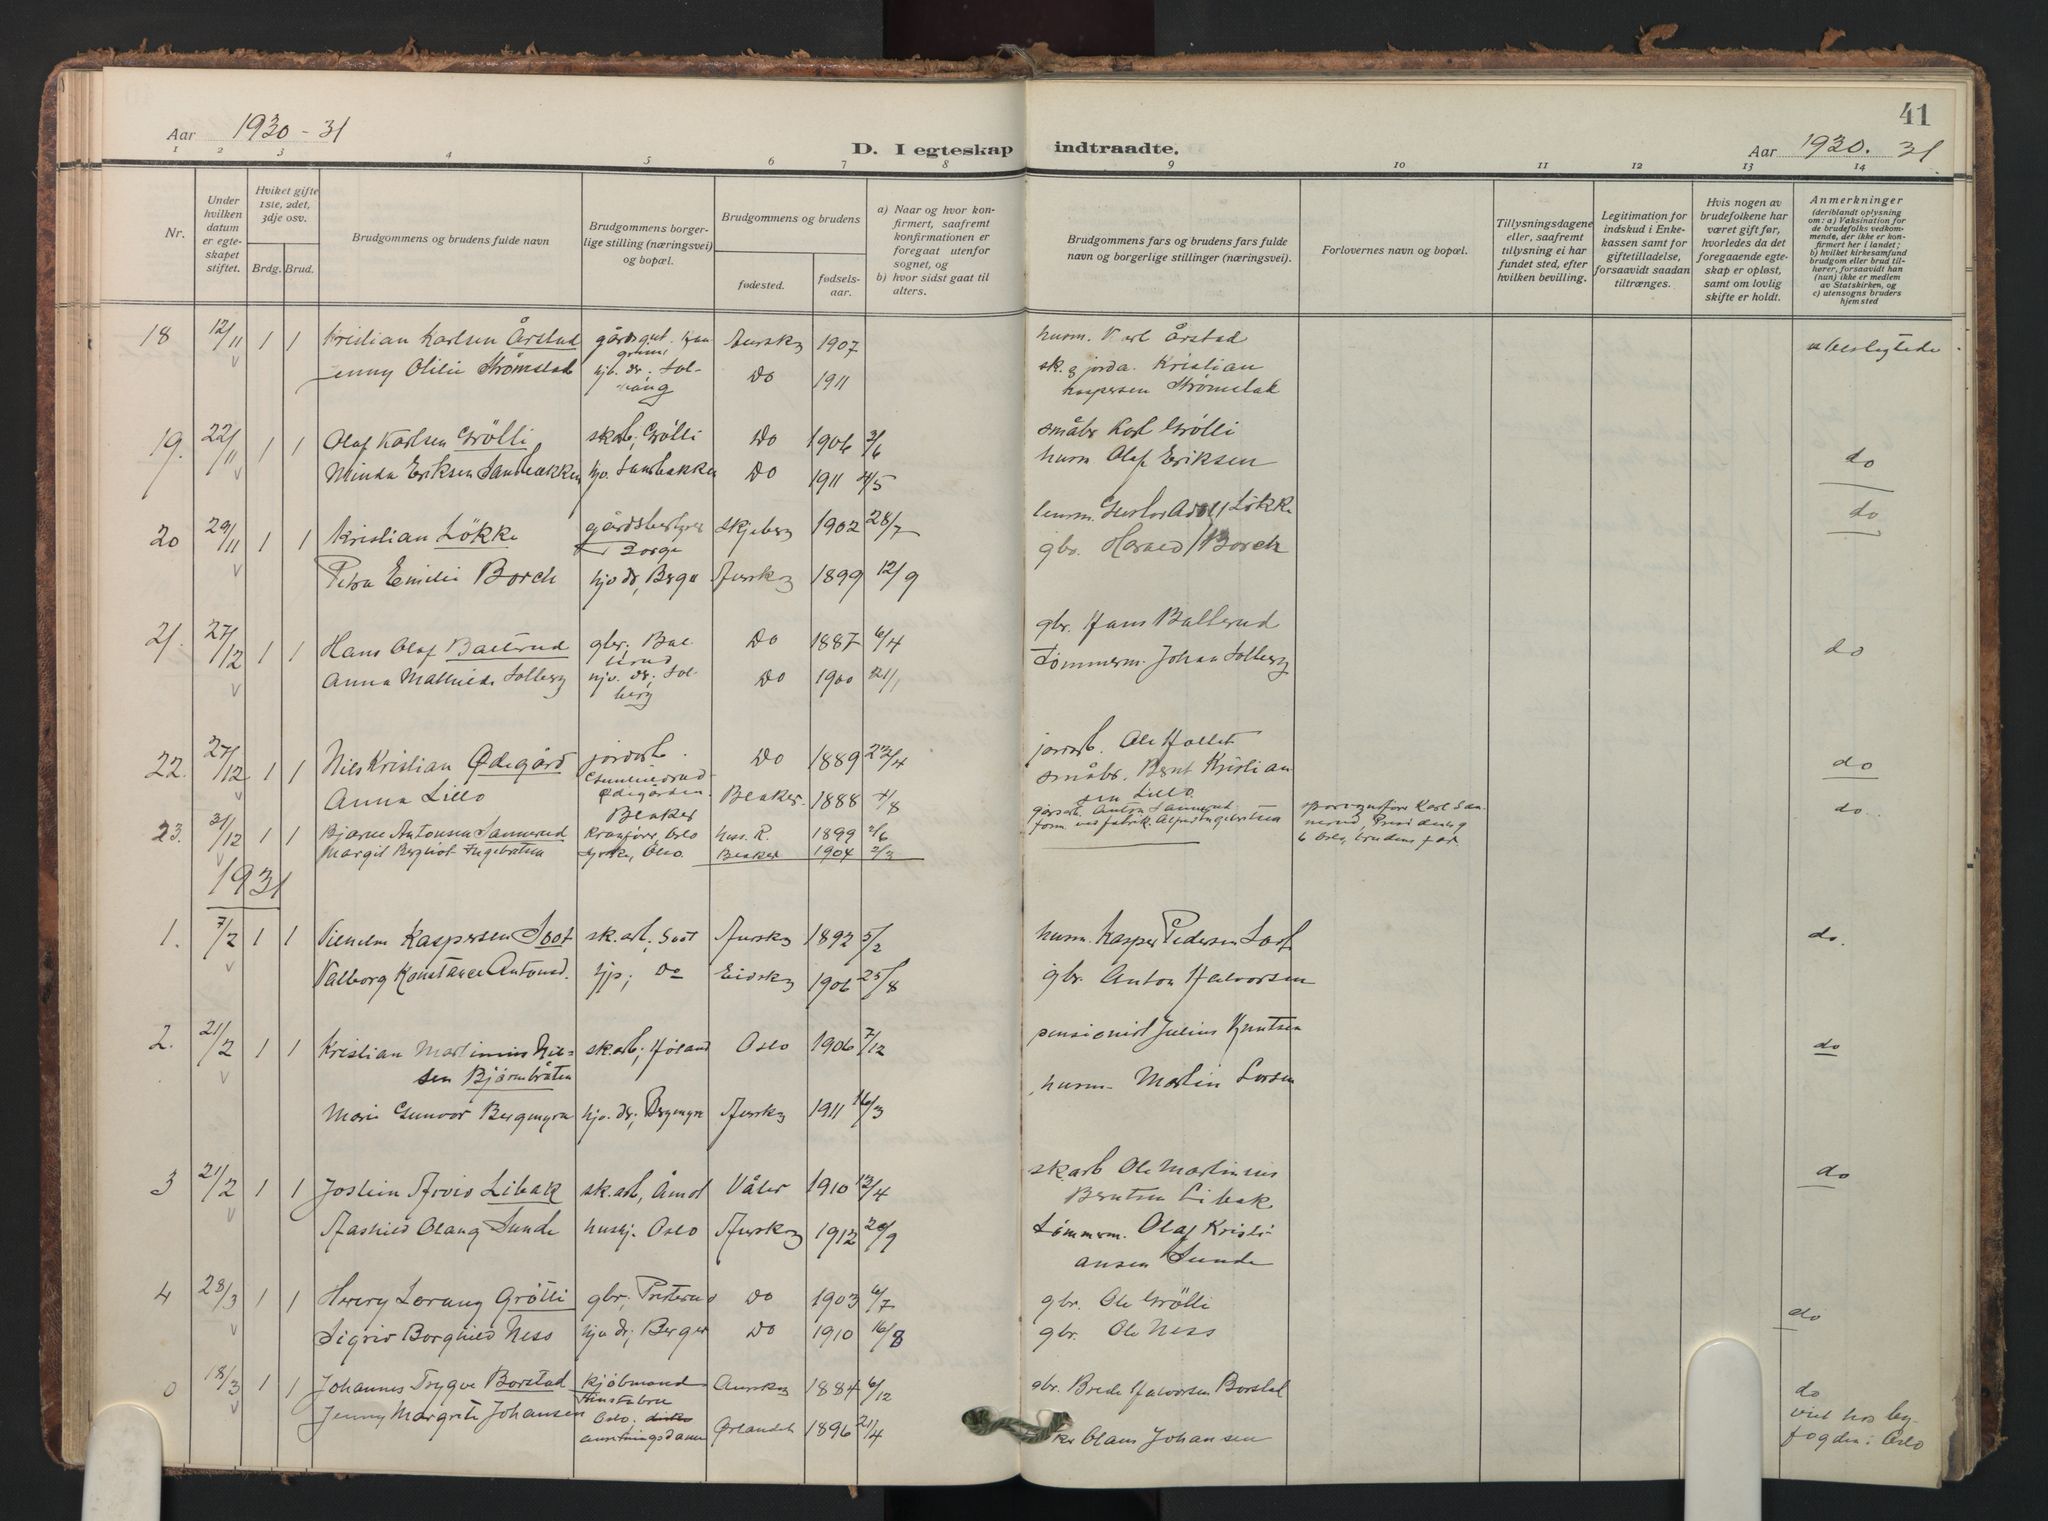 Aar 1930-31
D. I egteskap indtraadte.
41
Aar 1930. 31
1 2 3 4 5 6 7 8 9 10 11 12 13 14
Nr.
Under hvilken datum er egteskapet stiftet.
Hviket gifte 1ste, 2det, 3dje osv.
Brdg. Brud.
Brudgommens og brudens fulde navn
Brudgommens borgerlige stilling (næringsvei) og bopæl.
Brudgommens og brudens
fødested.
fødselsaar.
a) Naar og hvor konfirmert, saafremt konfirmationen er foregaat utenfor sognet, og
b) hvor sidst gaat til alters.
Brudgommens fars og brudens fars fulde navn og borgerlige stillinger (næringsvei).
Forlovernes navn og bopæl.
Tillysningsdagene eller, saafremt tillysning ei har fundet sted, efter hvilken bevilling.
Legitimation for indskud i Enkekassen samt for giftetilladelse, forsaavidt saadan tiltrænges.
Hvis nogen av brudefolkene har været gift før, hvorledes da det foregaaende egteskap er opløst, samt om lovlig skifte er holdt.
Anmerkninger
(deriblandt oplysning om: a) Vaksination for de brudefolks vedkommende, der ikke er konfirmert her i landet; b) hvilket kirkesamfund brudgom eller brud tilhører, forsaavidt han (hun) ikke er medlem av Statskirken, og c) utensogns bruders hjemsted
18 12/11 1 1 Kristian Karlsen Årstad Aursky 1907 husm. Karl Årstad ubeslegtede
Jenny Otilie Strømstak Do 1911 sk. g jorda. Kristian
Kaspersen Strømstak
19. 22/11 1 1 Olaf Karlsen Grölli sk.arb, Grölli Do 1906 3/6 småbr Karl Grölli do
Minda Eriksen Sandbækken hjv. Sandbakken Do 1911 4/5 husm Olaf Eriksen
20 29/11 1 1 Kristian Lökke gårdsbestyrer Skjeberg 1902 28/7 Lökke do
Borge gbr. Harald Borch
Petra Emilie Borch hjv dr, Berga Aursky 1899 12/9
21. 27/12 1 1 Hans Olaf Ballerud gbr. Ballerud Do 1887 6/4 gbr. Hans Ballerud do
Anna Mathilde Solberg hjv. dr, Solberg Do 1900 21/1 Tømmerm. Johan Solberg
22. 27/12 1 1 Nils Kristian Ødegård jordarb. Do 1889 23/4 jordarb. Ole do
Anna Lillo Ødegården. Blaker Blaker 1888 4/8 småbr. Bernt Kristiansen Lillo
23. 31/12 1 1 Bjarne Antonsen Sannerud Oslo 1899 2/6 Anton Sannerud Karl Sannerud do.
Margit Berghiot Ingebretsen Oslo. Blaker 1904 2/3 6 Oslo, brudens far
1931
1. 7/2 1 1 Vilhelm Kaspersen Soot sk.arb, Soot Aursky 1892 5/2 husm. Kasper Pedersen Soot do.
Valborg Konstance Antonsd. hjp; Do Eidsky 1906 25/8 gbr. Anton Halvorsen
2. 21/2 1 1 Kristian Martinius Nilsen Bjørnbråten sk.arb; Høland Oslo 1906 7/12 pensionist Julius Knutsen do
Marie Gunvor Bergmyra hjv. dr; Bergmyra Aursky 1911 16/3 husm. Martin Larsen
3 21/2 1 1 Jostein Arvid Libak sk.arb, Åmot Våler 1910 13/4 skarb Ole Martinius do
Berntsen Libak
Aashild Olaug Sunde hushj. Oslo Aursky 1912 20/9 Tømmerm. Olaf Kristiansen Sunde
4 28/3 1 1 Henry Lorang Grötli gbr, Presterud Do 1903 6/7 gbr. Ole Grölli do
Sigrid Borghild Ness hjv dr; Berger Do 1910 16/8 gbr. Ole Ness
0 18/3 1 1 Johannes Trygve Borstad kjöbmand Aursky 1884 6/12 gbr. Brede Halvorsen Borstad do
Jenny Margrete Johansen Oslo; anretningsdame Ørlandet 1896 21/4 Olaus Johansen viet hos byfogden i Oslo